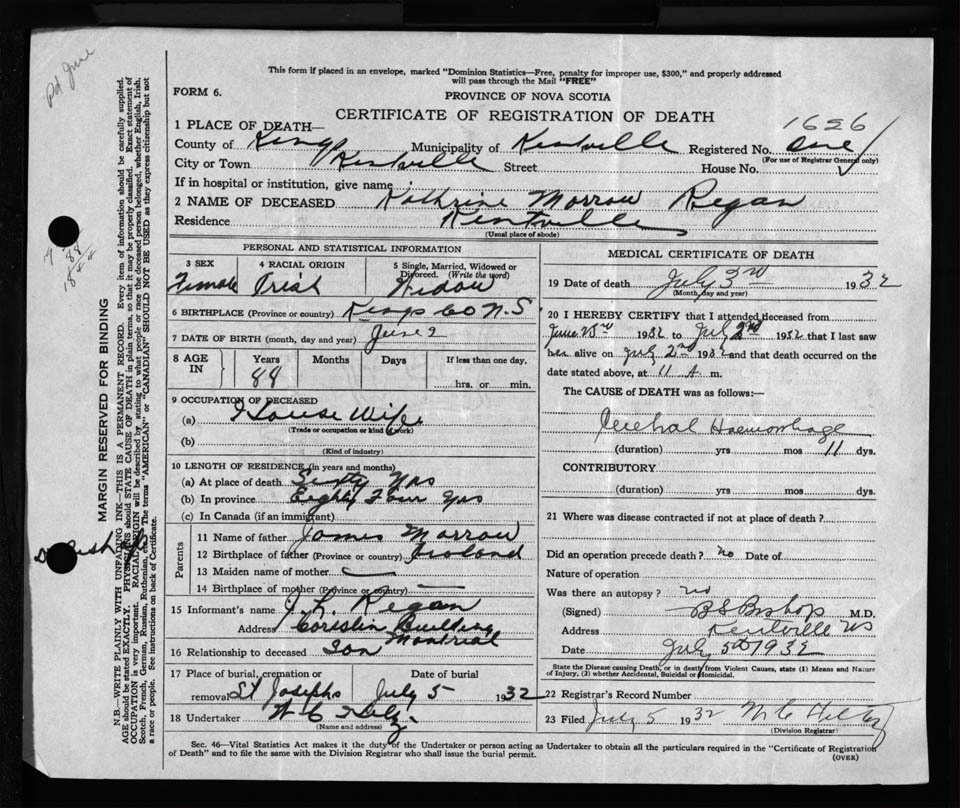 Pd June
This form if placed in an envelope, marked "Dominion Statistics—Free, penalty for improper use, $300," and properly addressed
will pass through the Mail "FREE"
FORM 6.
PROVINCE OF NOVA SCOTIA
CERTIFICATE OF REGISTRATION OF DEATH
1656
1 PLACE OF DEATH—
County of Kings Municipality of Kentville Registered No. one
(For use of Registrar General only)
City or Town Kentville Street House No.
If in hospital or institution, give name
2 NAME OF DECEASED Kathrine Morrow Regan
Residence Kentville
(Usual place of abode)
PERSONAL AND STATISTICAL INFORMATION
3 SEX 4 RACIAL ORIGIN 5 Single, Married, Widowed or Divorced. (Write the word)
Female Irish Widow
6 BIRTHPLACE (Province or country) Kings Co N.S
7 DATE OF BIRTH (month, day and year) June 2
8 AGE IN Years Months Days If less than one day,
88 hrs. or min.
9 OCCUPATION OF DECEASED
(a) House Wife
(Trade or occupation or kind of work)
(b)
(Kind of industry)
10 LENGTH OF RESIDENCE (in years and months)
(a) At place of death Sixty Yrs
(b) In province Eighty Four Yrs
(c) In Canada (if an immigrant)
Parents
11 Name of father James Morrow
12 Birthplace of father (Province or country)
13 Maiden name of mother —
14 Birthplace of mother (Province or country) —
15 Informant's name J. L. Regan
Address Coristin Building
Montreal
16 Relationship to deceased Son
17 Place of burial, cremation or removal Date of burial
St Josephs July 5 1932
18 Undertaker
(Name and address)
MEDICAL CERTIFICATE OF DEATH
19 Date of death July 3rd 1932
(Month, day and year)
20 I HEREBY CERTIFY that I attended deceased from
June 23rd 1932 to July 2nd 1932 that I last saw
her alive on July 2nd 1932 and that death occurred on the
date stated above, at 11 A m.
The CAUSE of DEATH was as follows:—
Cerebral Haemorrhage
(duration) yrs mos 11 dys.
CONTRIBUTORY
(duration) yrs. mos. dys.
21 Where was disease contracted if not at place of death?
Did an operation precede death? no Date of
Nature of operation
Was there an autopsy? no
(Signed) B S Bishop M.D.
Address Kentville NS
Date July 5th 1932
State the Disease causing Death, or in death from Violent Causes, state (1) Means and Nature
of Injury, (2) whether Accidental, Suicidal or Homicidal.
22 Registrar's Record Number
23 Filed July 5 1932
(Division Registrar)
Sec. 46—Vital Statistics Act makes it the duty of the Undertaker or person acting as Undertaker to obtain all the particulars required in the "Certificate of Registration
of Death" and to file the same with the Division Registrar who shall issue the burial permit.
(OVER)
MARGIN RESERVED FOR BINDING
N.B.—WRITE PLAINLY WITH UNFADING INK—THIS IS A PERMANENT RECORD. Every item of information should be carefully supplied.
AGE should be stated EXACTLY. PHYSICIANS should STATE CAUSE OF DEATH in plain terms, so that it may be properly classified. Exact statement of
OCCUPATION is very important. RACIAL ORIGIN will be described by stating to what people or race the deceased person belonged, whether English, Irish,
Scotch, French, German, Russian, Ruthenian, etc. The terms "AMERICAN" or "CANADIAN" SHOULD NOT BE USED as they express citizenship but not
a race or people. See instructions on back of Certificate.